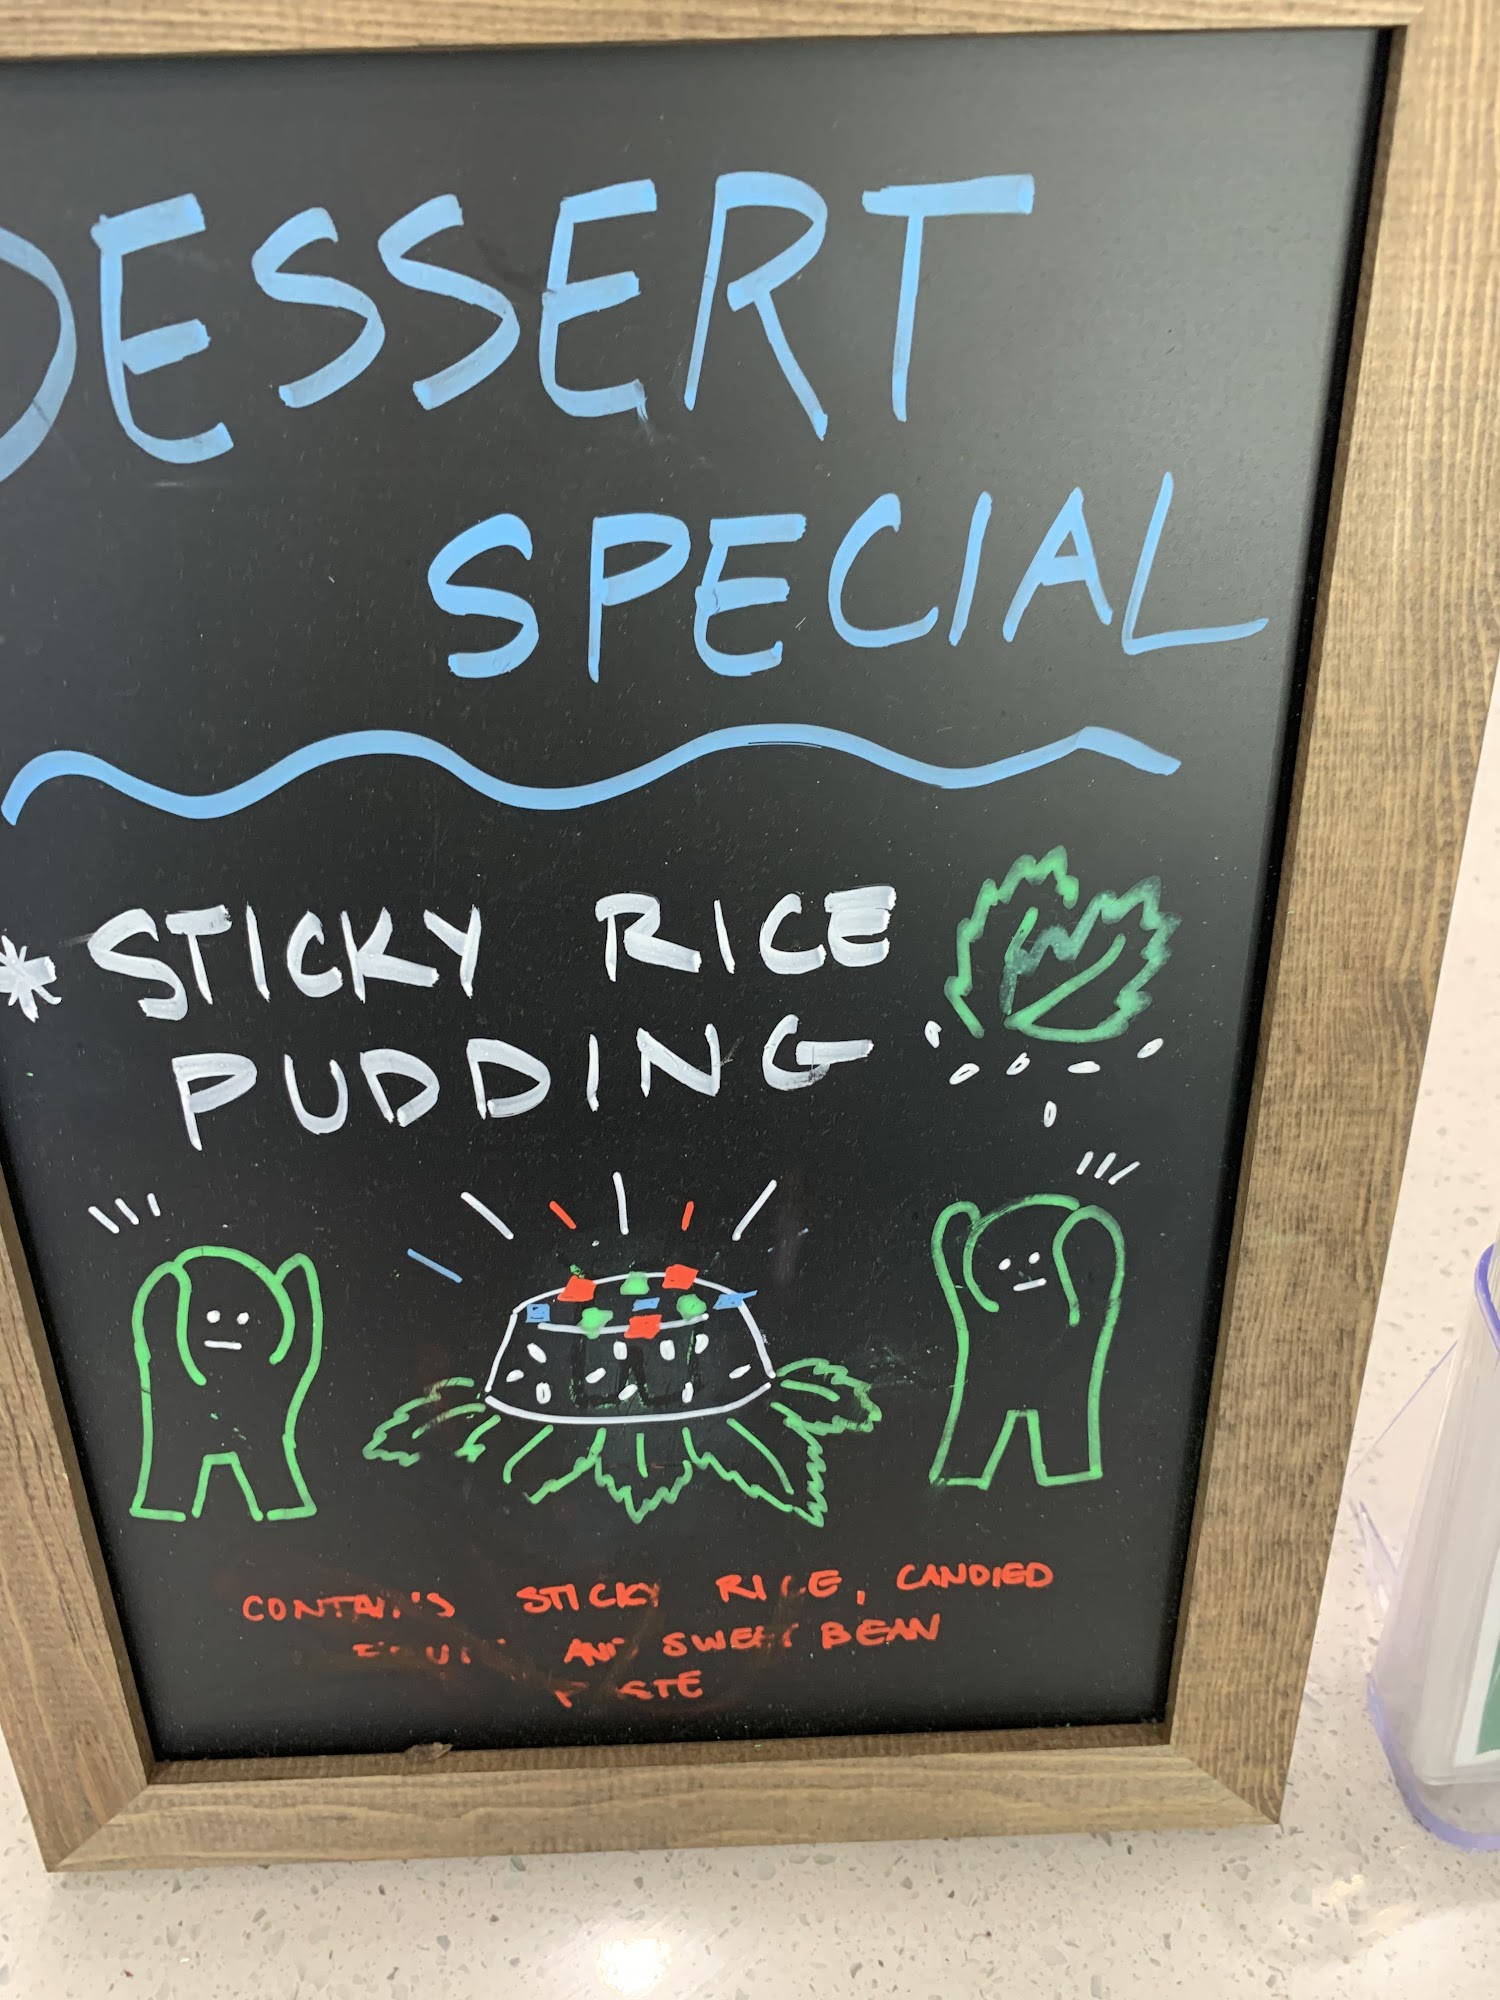 DESSERT
SPECIAL
* STICKY RICE
PUDDING
CONTAINS STICKY RICE, CANDIED
FRUIT AND SWEET BEAN
PASTE